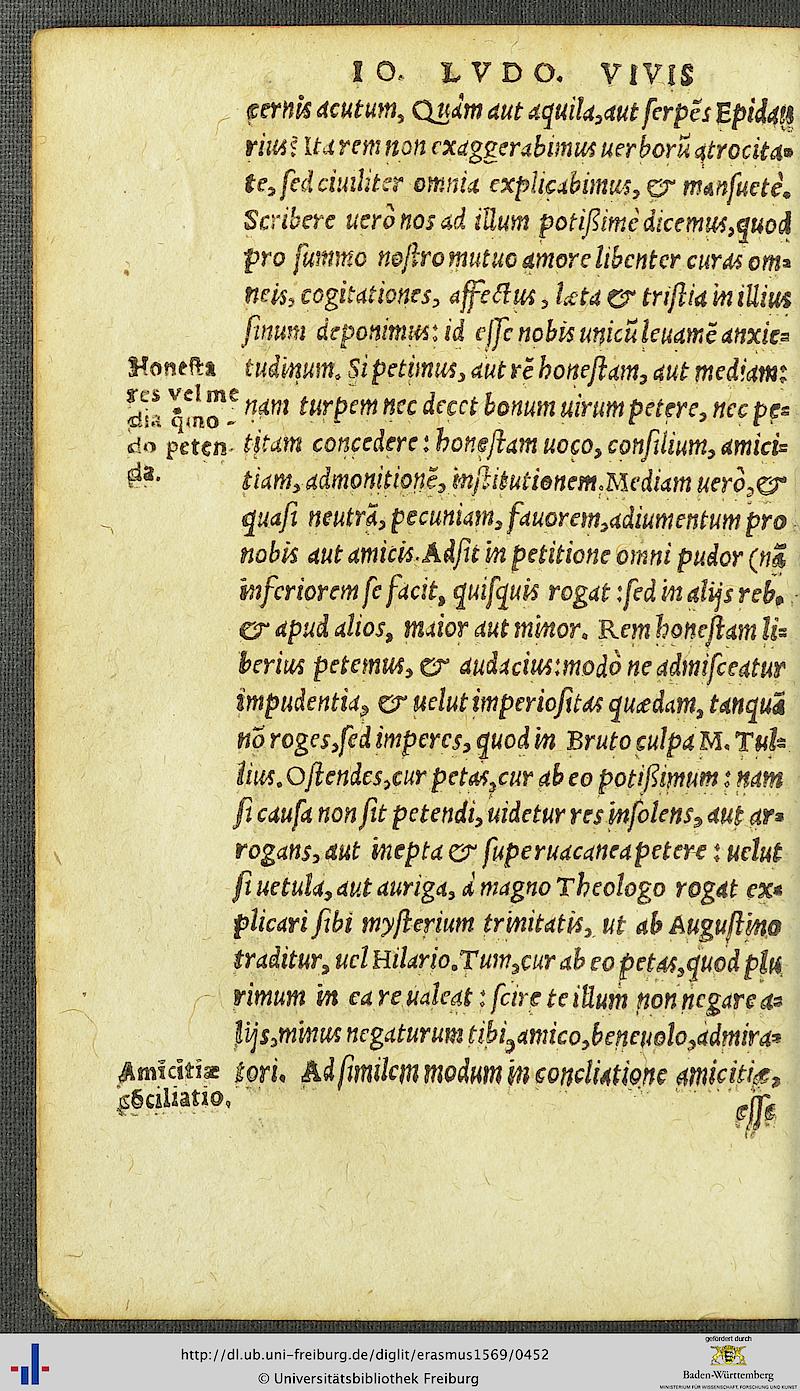 IO. LVDO. VIVIS
cernis acutum, Quàm aut aquila, aut ſerpẽs Epidau
rius? Ita rem non exaggerabimus uerborũ atrocita-
te, ſed ciuiliter omnia explicabimus, & manſuetè.
Scribere uerò nos ad illum potißimè dicemus, quod
pro ſummo noſtro mutuo amore libenter curas om-
neis, cogitationes, affectus, læta & triſtia in illius
ſinum deponimus: id eſſe nobis unicũ leuamẽ anxie-
tudinum. Si petimus, aut rẽ honeſtam, aut mediam:
nam turpem nec decet bonum uirum petere, nec pe-
titam concedere: honeſtam uoco, conſilium, amici-
tiam, admonitionẽ, inſtitutionem. Mediam uerò, &
quaſi neutrã, pecuniam, fauorem, adiumentum pro
nobis aut amicis. Adſit in petitione omni pudor (nã
inferiorem ſe facit, quiſquis rogat: ſed in alijs reb.
& apud alios, maior aut minor. Rem honeſtam li-
berius petemus, & audacius: modò ne admiſceatur
impudentia, & uelut imperioſitas quædam, tanquã
nõ roges, ſed imperes, quod in Bruto culpa M. Tul-
lius. Oſtendes, cur petas, cur ab eo potißimum: nam
ſi cauſa non ſit petendi, uidetur res inſolens, aut ar-
rogans, aut inepta & ſuperuacanea petere: uelut
ſi uetula, aut auriga, à magno Theologo rogat ex-
plicari ſibi myſterium trinitatis, ut ab Auguſtino
traditur, uel Hilario. Tum, cur ab eo petas, quod plu
rimum in ea re ualeat: ſcire te illum non negare a-
lijs, minus negaturum tibi, amico, beneuolo, admira-
tori. Ad ſimilem modum in concliatione amicitiæ,
eſſe
Honeſta
res vel me
dia quo-
do peten-
da.
Amicitiæ
cõciliatio.
http://dl.ub.uni-freiburg.de/diglit/erasmus1569/0452
© Universitätsbibliothek Freiburg
gefördert durch
Baden-Württemberg
MINISTERIUM FÜR WISSENSCHAFT, FORSCHUNG UND KUNST